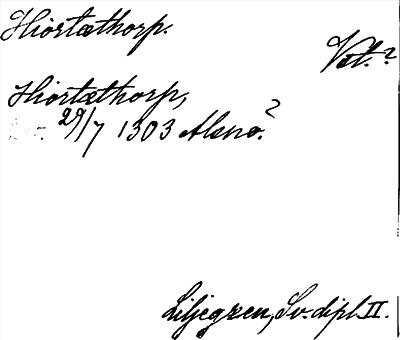 Hiortæthorp.
Vct.?
Hiortæthorp,
29/7 1303 Alsnö.?
Liljegren, Sv. dipl. II.